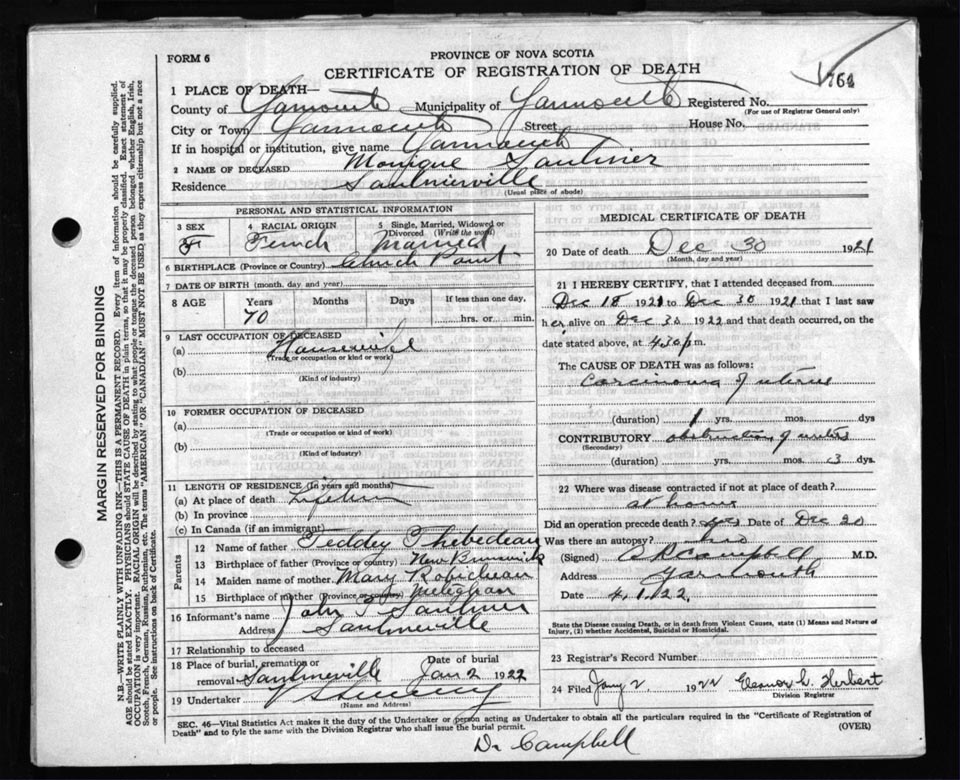 761
FORM 6
PROVINCE OF NOVA SCOTIA
CERTIFICATE OF REGISTRATION OF DEATH
1 PLACE OF DEATH—
County of Yarmouth Municipality of Yarmouth Registered No.
(For use of Registrar General only)
City or Town Yarmouth Street House No.
If in hospital or institution, give name Yarmouth
2 NAME OF DECEASED Monique Saulnier
Residence Saulnierville
(Usual place of abode)
PERSONAL AND STATISTICAL INFORMATION
3 SEX 4 RACIAL ORIGIN 5 Single, Married, Widowed or Divorced (Write the word)
F French Married
6 BIRTHPLACE (Province or Country) Church Point
7 DATE OF BIRTH (month, day and year)
8 AGE Years Months Days If less than one day,
70 hrs. or min.
9 LAST OCCUPATION OF DECEASED
(a) Housewife
(Trade or occupation or kind or work)
(b)
(Kind of industry)
10 FORMER OCCUPATION OF DECEASED
(a)
(Trade or occupation or kind of work)
(b)
(Kind of industry)
11 LENGTH OF RESIDENCE (In years and months)
(a) At place of death Lifetime
(b) In province
(c) In Canada (if an immigrant)
Parents
12 Name of father Teddey Thebedeau
13 Birthplace of father (Province or country) New Brunswick
14 Maiden name of mother Mary Robicheau
15 Birthplace of mother (Province or country) Meteghan
16 Informant's name John F Saulnier
Address Saulnierville
17 Relationship to deceased
18 Place of burial, cremation or Date of burial
removal Saulnierville Jan 2 1922
19 Undertaker V Sweeney
(Name and Address)
MEDICAL CERTIFICATE OF DEATH
20 Date of death Dec 30 1921
(Month, day and year)
21 I HEREBY CERTIFY, that I attended deceased from
Dec 18 1921 to Dec 30 1921 that I last saw
her alive on Dec 30 1922 and that death occurred, on the
date stated above, at 4.30 p.m.
The CAUSE OF DEATH was as follows:
Carcinoma of uterus
(duration) 1 yrs. mos. dys
CONTRIBUTORY obstruction of ureters
(Secondary)
(duration) yrs. mos. 3 dys.
22 Where was disease contracted if not at place of death?
at home
Did an operation precede death? yes Date of Dec 20
Was there an autopsy? no
(Signed) Campbell M.D.
Address Yarmouth
Date 4.1.22.
State the Disease causing Death, or in death from Violent Causes, state (1) Means and Nature of
Injury, (2) whether Accidental, Suicidal or Homicidal.
23 Registrar's Record Number
24 Filed Jany 2 1922 Eleanor L. Herbert
Division Registrar
SEC. 46—Vital Statistics Act makes it the duty of the Undertaker or person acting as Undertaker to obtain all the particulars required in the "Certificate of Registration of
Death" and to fyle the same with the Division Registrar who shall issue the burial permit. (OVER)
Dr Campbell
MARGIN RESERVED FOR BINDING
N.B.—WRITE PLAINLY WITH UNFADING INK—THIS IS A PERMANENT RECORD. Every item of information should be carefully supplied.
AGE should be stated EXACTLY. PHYSICIANS should STATE CAUSE OF DEATH in plain terms, so that it may be properly classified. Exact statement of
OCCUPATION is very important. RACIAL ORIGIN will be described by stating to what people or tongue the deceased person belonged whether English, Irish,
Scotch, French, German, Russian, Ruthenian, etc. The terms "AMERICAN" OR "CANADIAN" MUST NOT BE USED as they express citizenship but not a race
or people. See instructions on back of Certificate.